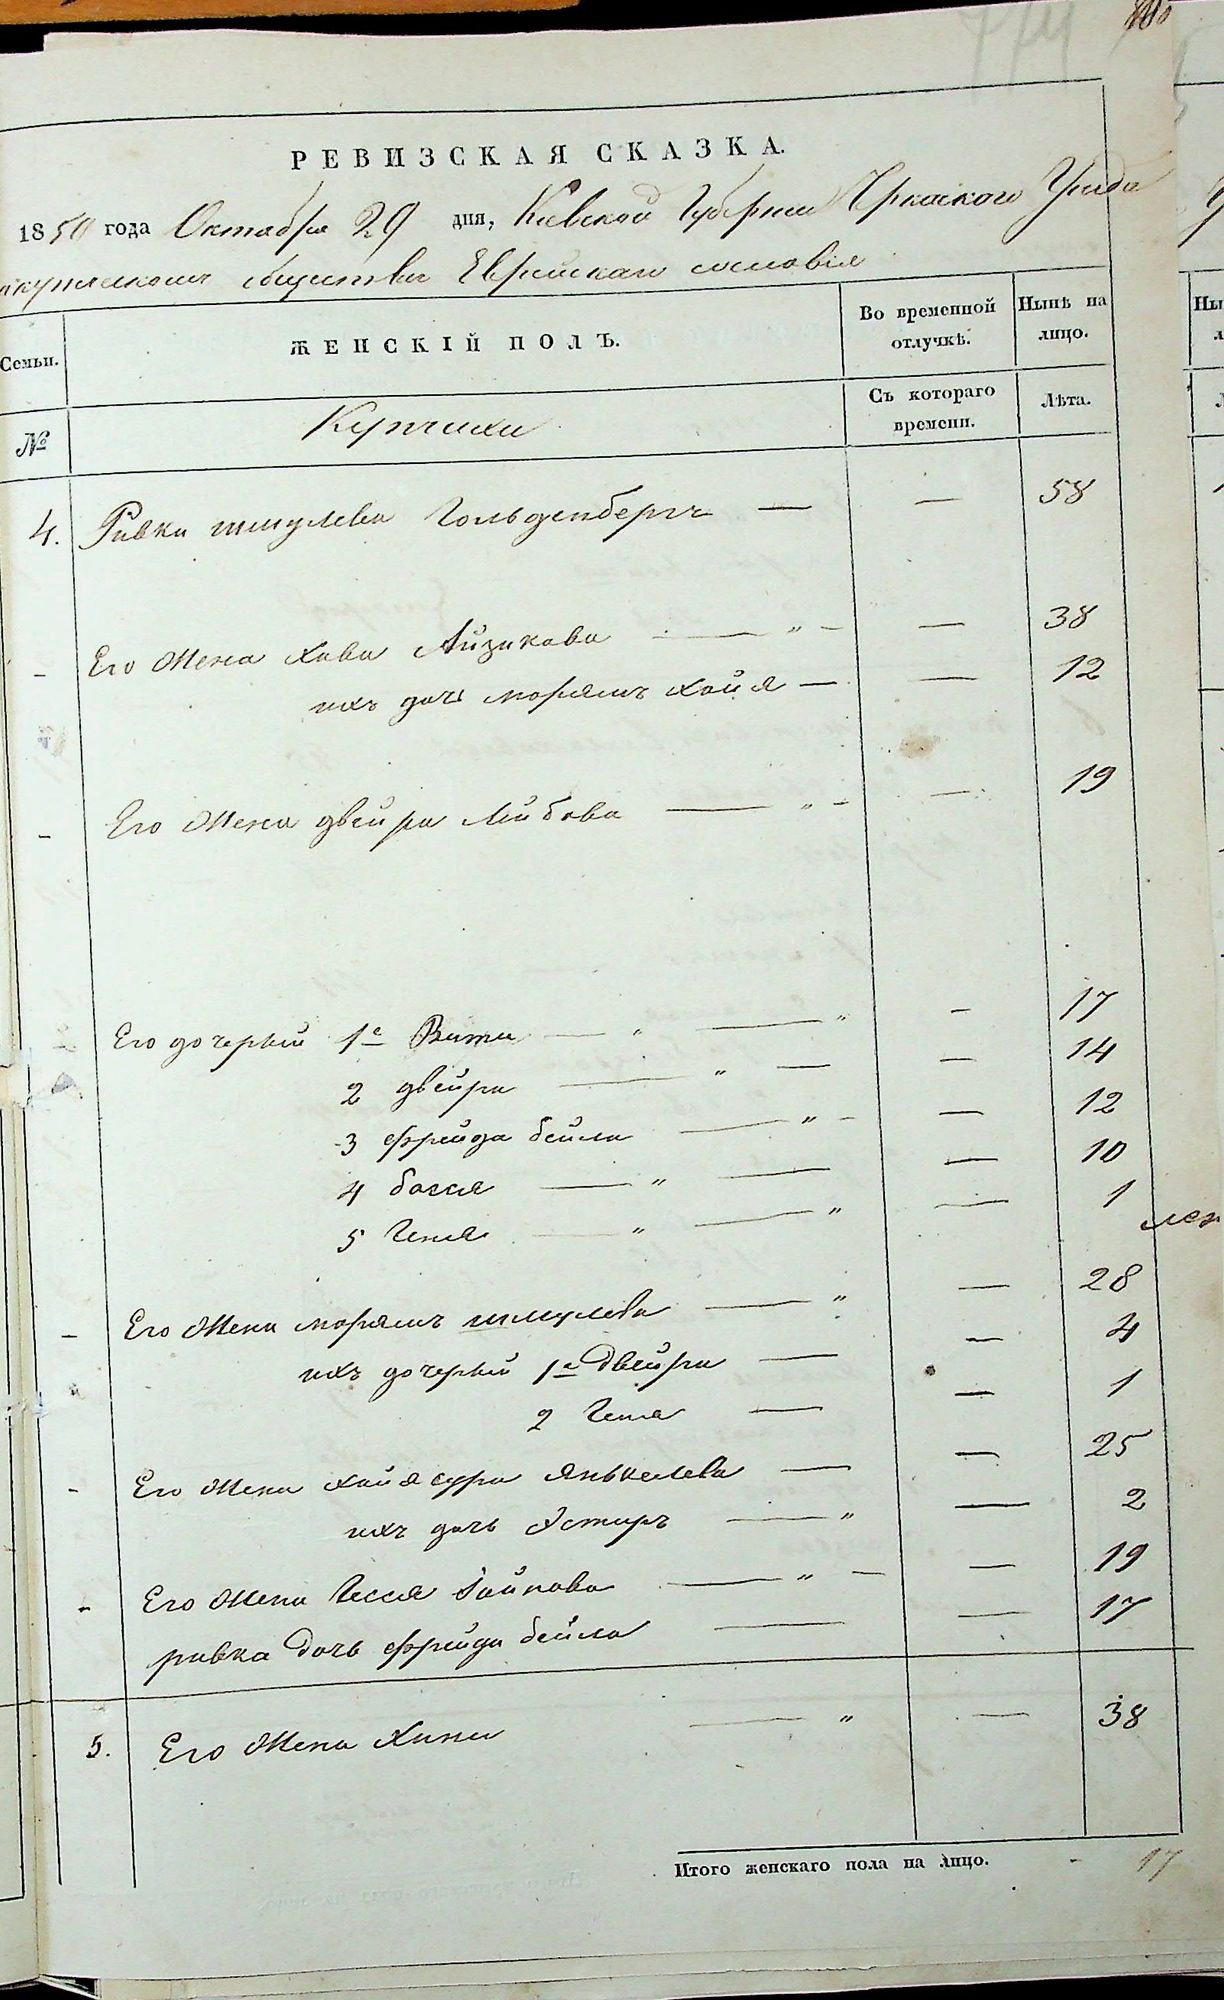 РЕВИЗСКАЯ СКАЗКА.
1850 года Октября 29 дня, Киевской Губернии Черкаского Уезда
купеческом обществи Еврейскаго сословія
Семьи. ЖЕНСКІЙ ПОЛЪ. Во временной отлучкѣ. Нынѣ на лицо.
№ Купчихи Съ котораго времени. Лѣта.
4. Ривка шмулева Гольденбергъ — — 58
- Его Жена Хава Айзикова — " - — 38
ихъ дочь морямъ хайя — — 12
- Его Жена двейра Лейбова — " - — 19
Его дочерьи 1е Витя — " — " - 17
2 двейра — " — — 14
3 фрейда бейла — " - — 12
4 бася — " — — 10
5 Геня — " — " — 1
- Его Жена морямъ шмулева — " — 28
ихъ дочерьи 1е Двейра — — 4
2 Геня — — 1
- Его Жена хайя сура Янькелева — — 25
ихъ дочь Эстиръ — " — 2
- Его Жена Гесся — " — — 19
ривка Дочь фрейда бейла — — 17
5. Его Жена Хина — " — 38
Итого женскаго пола на лицо. - 17